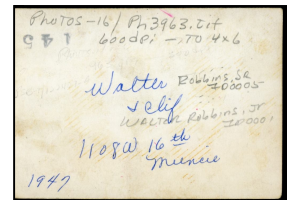 Photos-16/Ph3963.tif
600dpi - TO 4x6
145
Walter Robbins, SR
I00005
& Clif
WALTER Robbins, Jr
I00001
1108W 16th
Muncie
1947